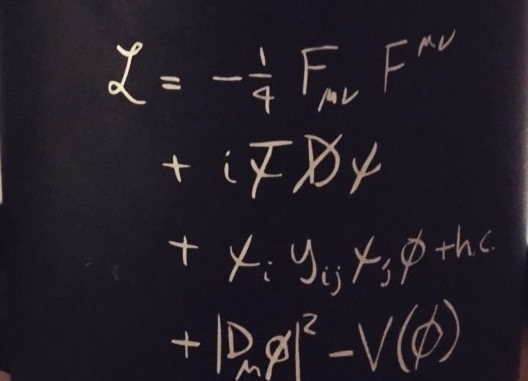 ℒ = -1/4 F_μν F^μν
+ i ψ̄ D̸ ψ
+ ψ_i y_ij ψ_j ϕ + h.c.
+ |D_μ ϕ|² - V(ϕ)